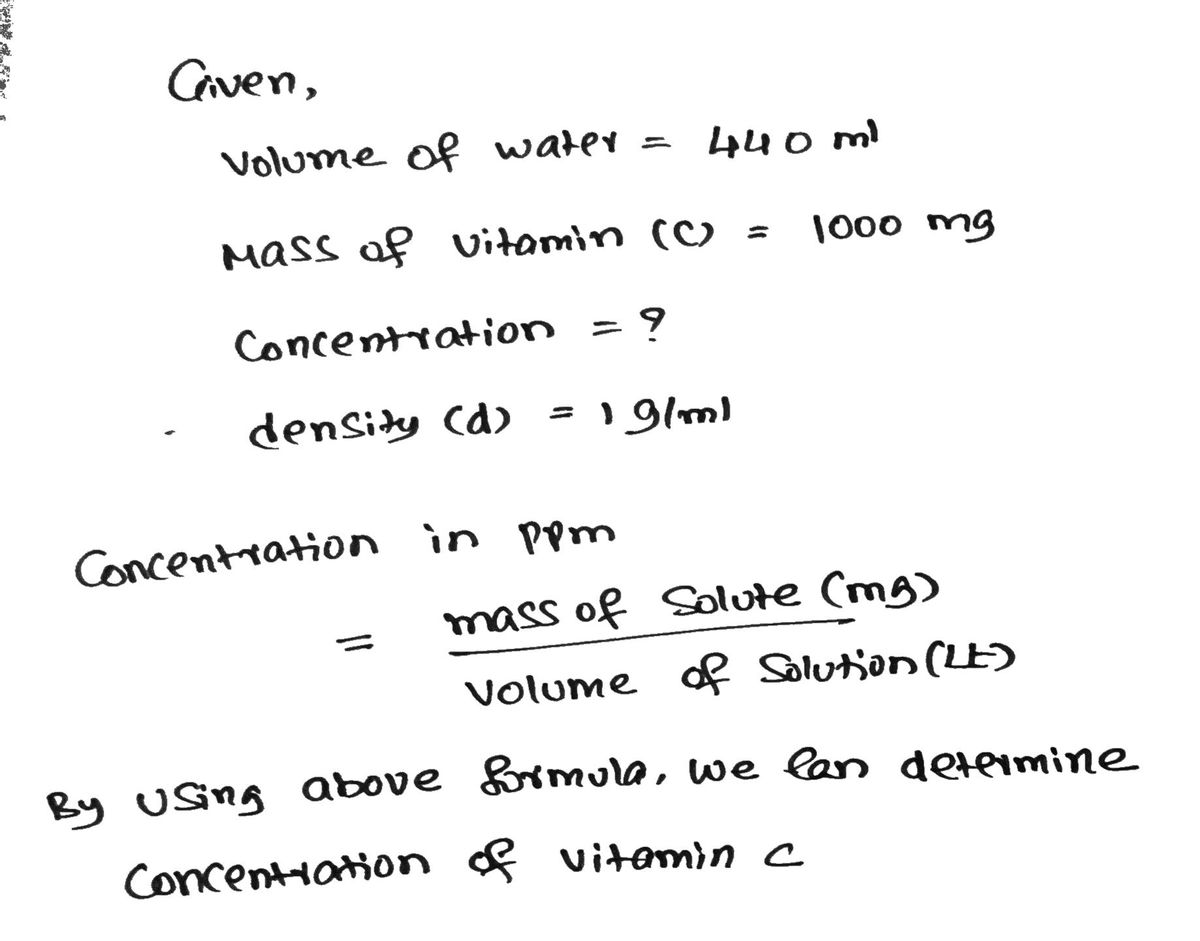 Given,
Volume of water = 440 ml
Mass of vitamin (C) = 1000 mg
Concentration = ?
density (d) = 1 g/ml
Concentration in ppm
= mass of Solute (mg)
Volume of Solution (Lt)
By using above formula, we can determine
Concentration of vitamin C